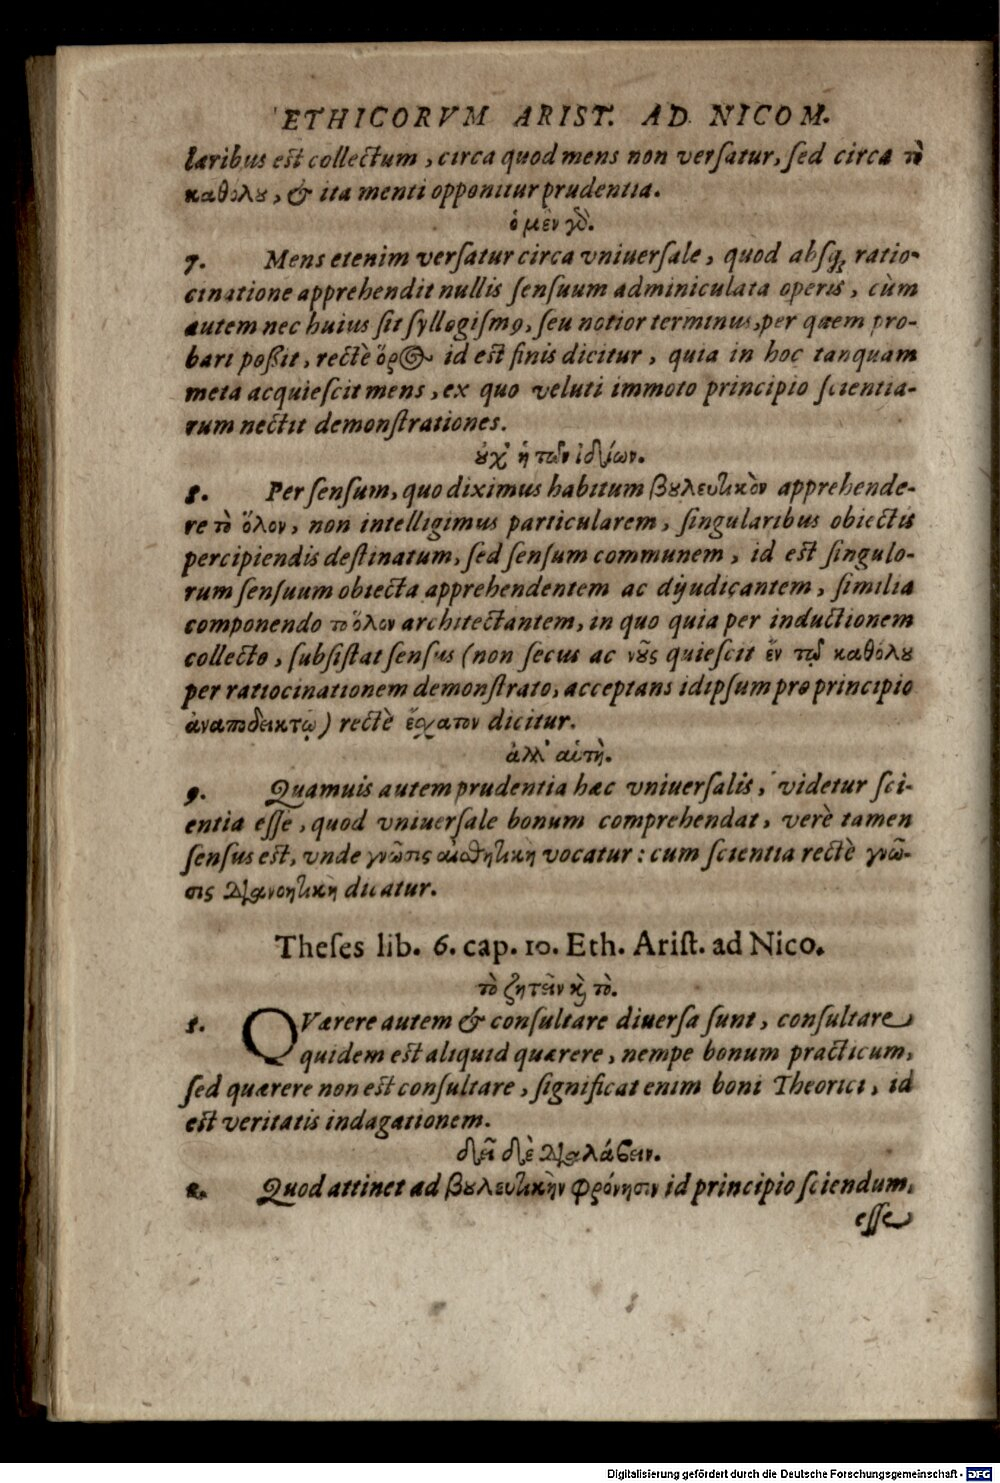 ETHICORVM ARIST. AD NICOM.
laribus est collectum, circa quod mens non versatur, sed circa τὸ
καθόλȣ, & ita menti opponitur prudentia.
ὁ μὲν γὸ.
7. Mens etenim versatur circa vniuersale, quod absq; ratio-
cinatione apprehendit nullis sensuum adminiculata operis, cùm
autem nec huius sit syllogismo, seu notior terminus, per quem pro-
bari poßit, rectè ὅρος id est finis dicitur, quia in hoc tanquam
meta acquiescit mens, ex quo veluti immoto principio scientia-
rum nectit demonstrationes.
ȣχ' ἡ τῶν ἰδίων.
8. Per sensum, quo diximus habitum βȣλευτικὸν apprehende-
re τὸ ὅλον, non intelligimus particularem, singularibus obiectis
percipiendis destinatum, sed sensum communem, id est singulo-
rum sensuum obiecta apprehendentem ac dijudicantem, similia
componendo το ὅλον architectantem, in quo quia per inductionem
collecto, subsistat sensus (non secus ac νȣ͂ς quiescit ἐν τῷ καθόλȣ
per ratiocinationem demonstrato, acceptans idipsum pro principio
ἀναποδεικτῳ) rectè ἔσχατον dicitur.
ἀλλ' αὑτὴ.
9. Quamuis autem prudentia hæc vniuersalis, videtur sci-
entia esse, quod vniuersale bonum comprehendat, verè tamen
sensus est, vnde γνῶσις αἰσθητικὴ vocatur: cum scientia rectè γνῶ-
σις Διανοητικὴ dicatur.
Theses lib. 6. cap. 10. Eth. Arist. ad Nico.
τὸ ζητεῖν ϗ τὸ.
1. QVærere autem & consultare diuersa sunt, consultare
quidem est aliquid quærere, nempe bonum practicum,
sed quærere non est consultare, significat enim boni Theorici, id
est veritatis indagationem.
δεῖ δὲ Διαλάβειν.
2. Quod attinet ad βȣλευτικὴν φρόνησιν id principio sciendum,
esse
Digitalisierung gefördert durch die Deutsche Forschungsgemeinschaft - DFG